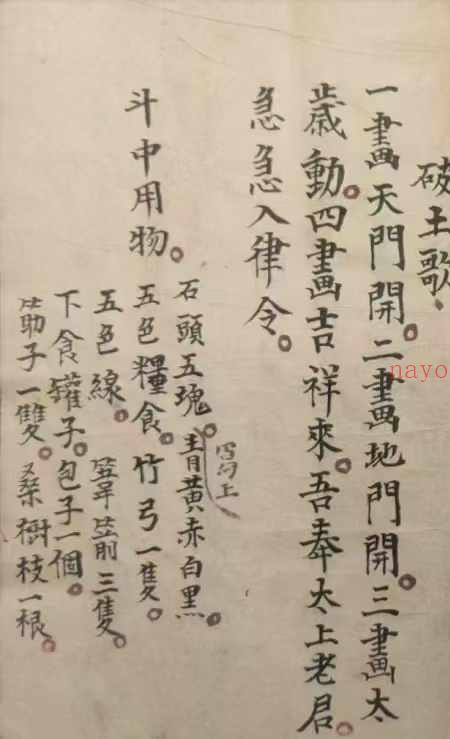 破土歌、
一畫天門開。二畫地門開。三畫太
歲動。四畫吉祥來。吾奉太上老君。
急急入律令。
斗中用物。
石頭五塊。青黃赤白黑。
五色糧食。竹弓一隻。
五色線。葦箭三隻。
下食罐子。包子一個。
筯子一雙。桑樹枝一根。
nayo